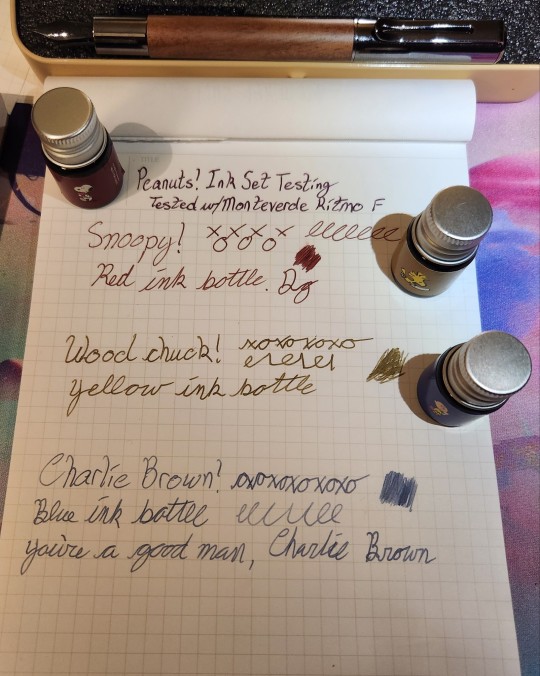 TITLE
Peanuts! Ink Set Testing
Tested w/Monteverde Ritmo F
Snoopy! xoxoxoxox eeeeeee
Red ink bottle.
Wood chuck! xoxoxoxo
Yellow ink bottle
Charlie Brown! oxoxoxoxoxo
Blue ink bottle
you're a good man, Charlie Brown